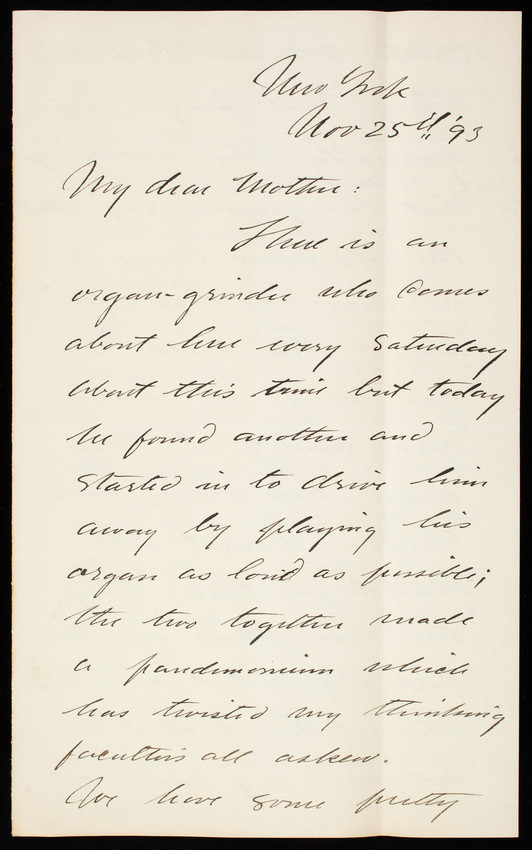 New York
Nov 25th '93
My dear Mother:
There is an
organ-grinder who comes
about here every Saturday
about this time but today
he found another and
started in to drive him
away by playing his
organ as loud as possible;
the two together made
a pandemonium which
has twisted my thinking
faculties all askew.
We have some pretty